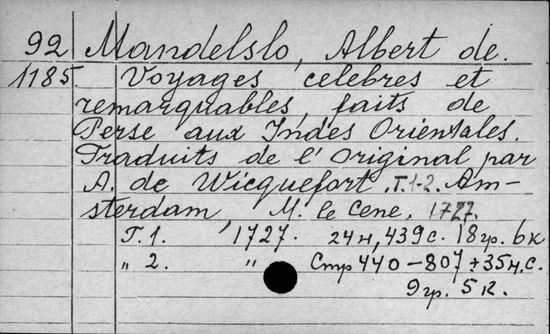 92 Mandelslo, Albert de.
1185. Voyages celebres et
remarquables, faits de
Perse aux Indes Orientales.
Traduits de l'original par
A. de Wicquefort. T.1-2. Am-
sterdam, M. le Cene, 1727.
T. 1. 1727. 24н, 439 с. 18 гр. 6 к
„ 2. „ Стр 440-807 + 35 н. с.
9 гр. 5 к.